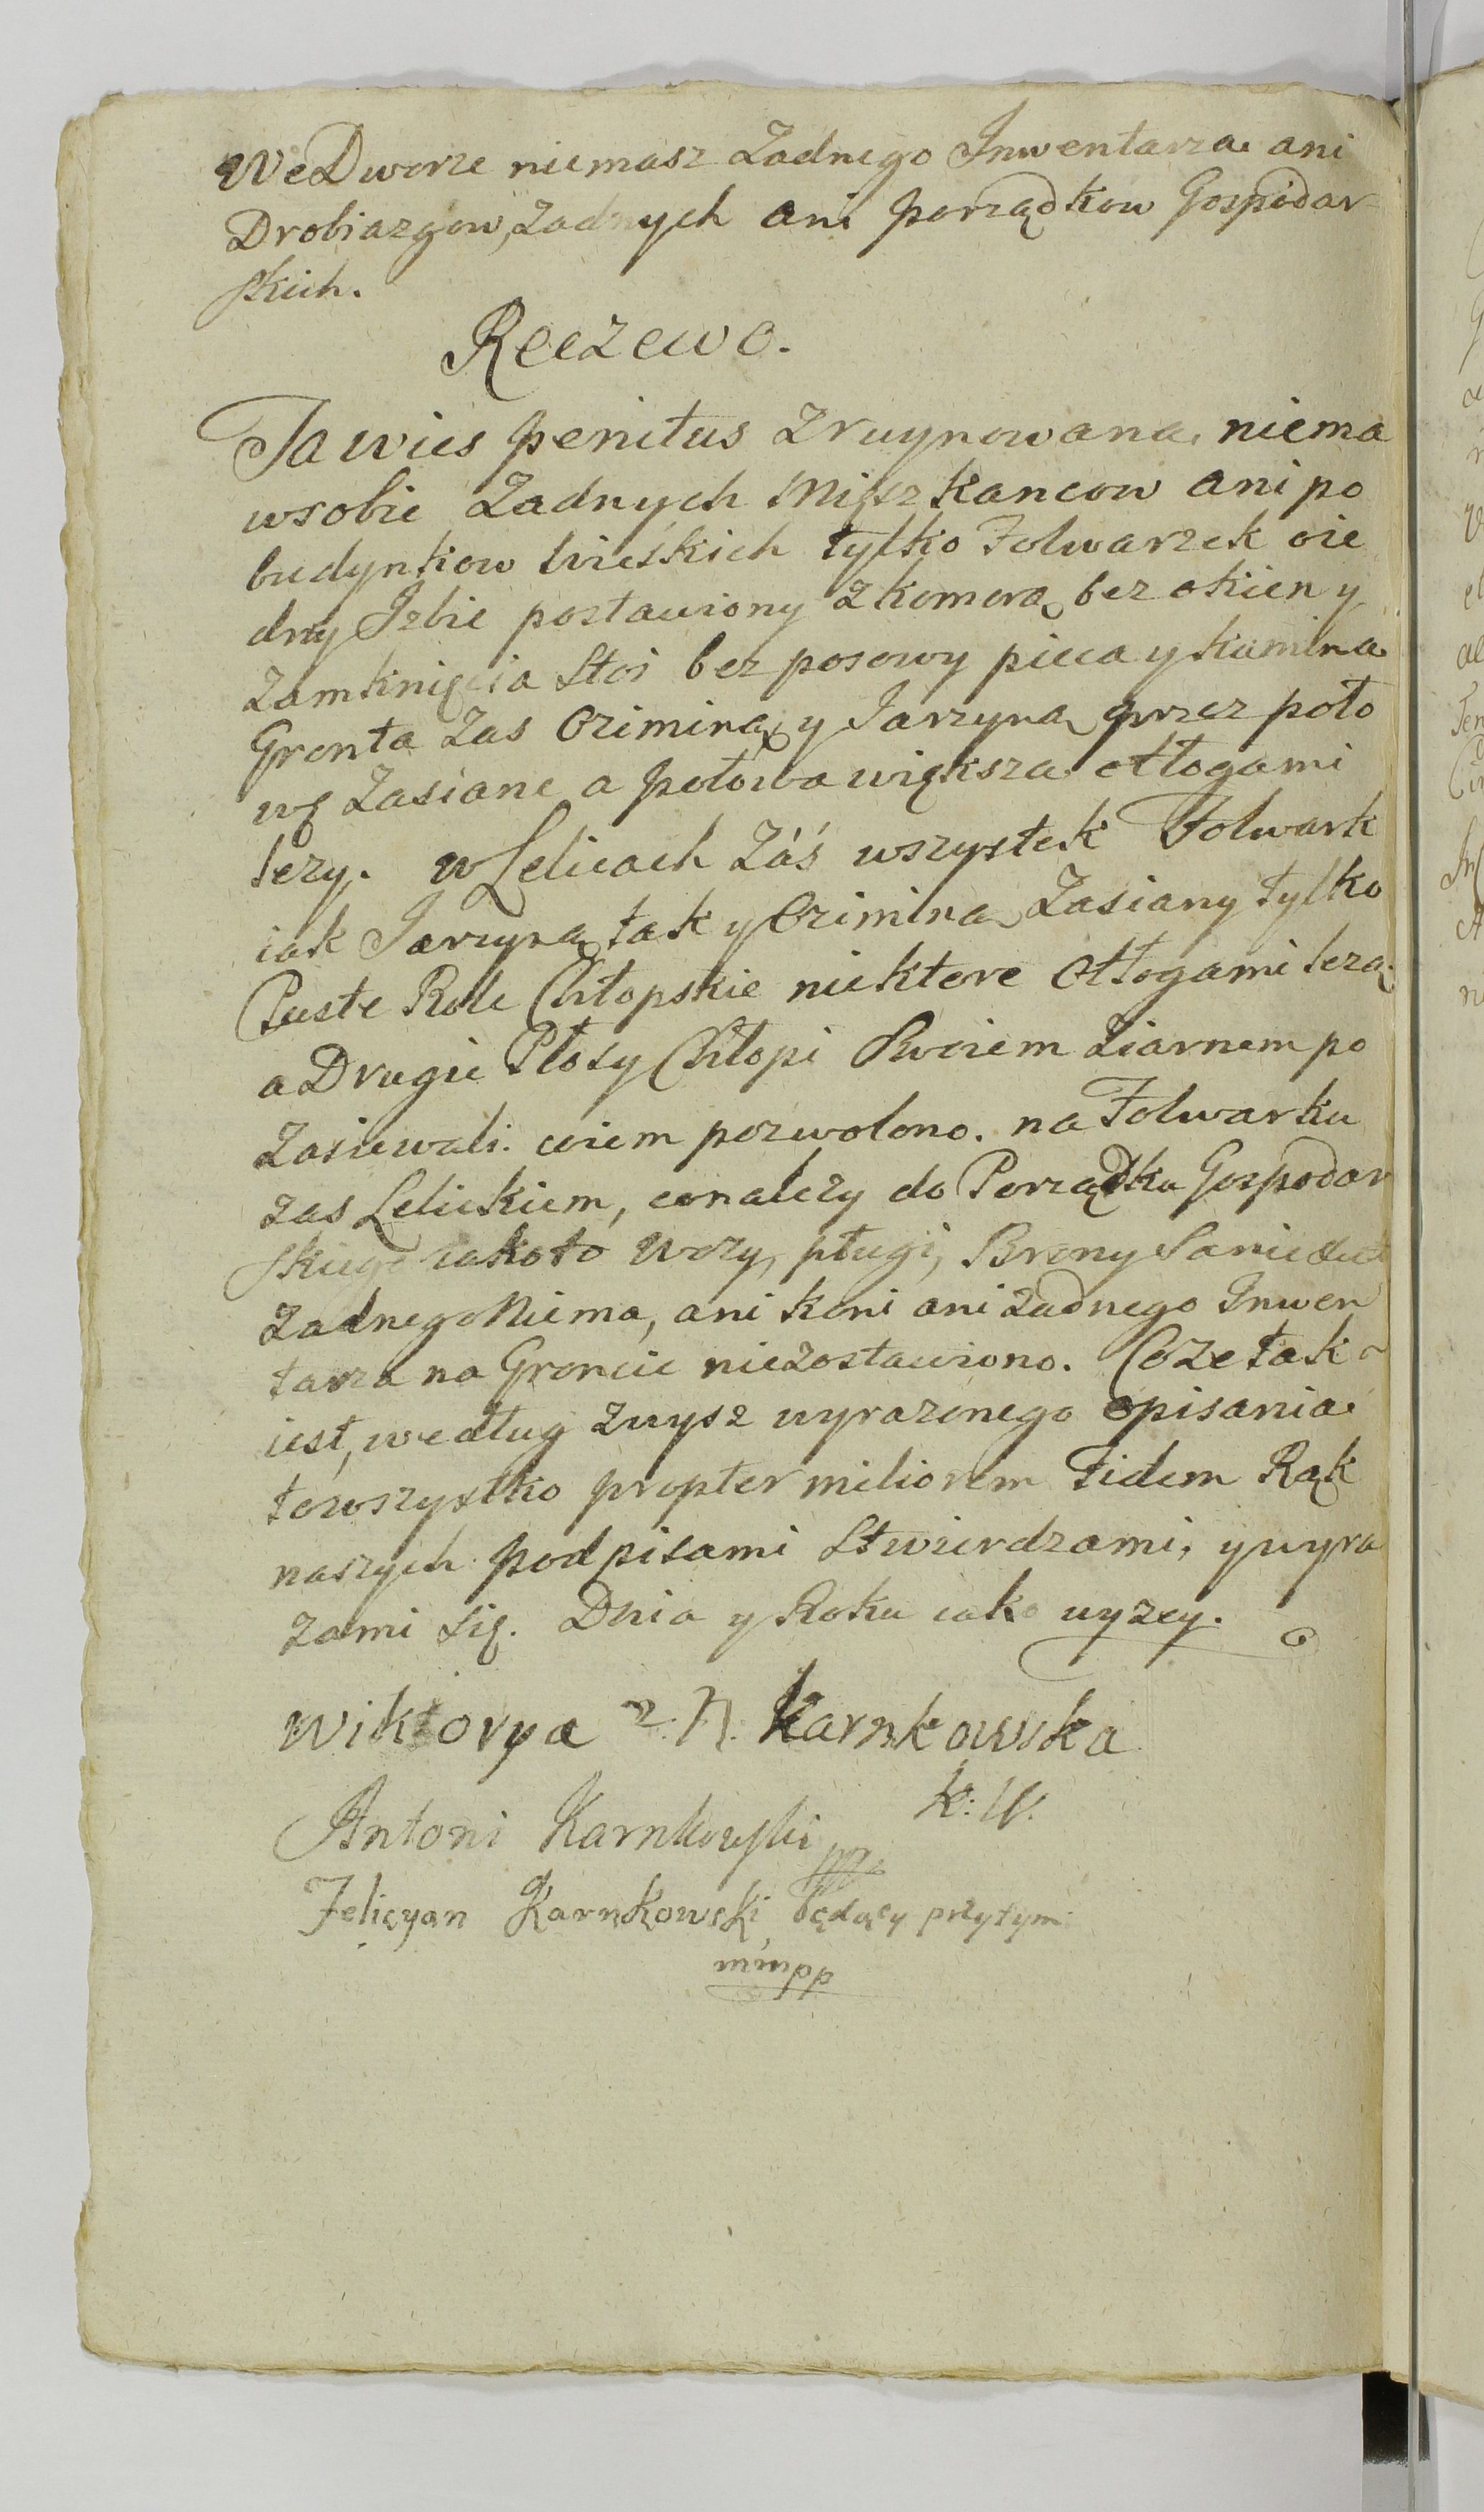 We Dworze niemasz Zadnego Inwentarza ani
Drobiazgow, Zadnych ani porządkow Gospodar
skich.
Reczewo.
Ta wies penitus Zruynowana, niema
wsobie Zadnych Miszkancow ani po
budynkow wieśkich tylko Folwarzek oie
dny Izbie postawiony Zkomorą bez okien y
Zamknięcia Stoi bez posowy pieca y kamina
Gronta Zas Oziminą y Jarzyną przez poło
wę Zasiane a połowa większa otłogami
lezy. w Lelicach Záś wszystek Folwark
iak Jarzyną tak y Oziminą Zasiany tylko
Puste Role Chłopskie niektore Otłogami lezą
a Drugie Płosy Chłopi Swoiem Ziarnem po
Zasiewali. coiem pozwolono. na Folwarku
zas Lelickiem, conalezy do Porządku Gospodar
skiego iakoto Wozy, pługi, Brony Sanie
Zadnego Niema, ani koni ani Zadnego Inwen
tarza na Groncie niezostawiono. Coze tak
iest, według Zwysz wyrazonego opisania
towszystko propter meliorem Fidem Rąk
naszych podpisami Stwierdzami, y wyra
zami się. Dnia y Roku iako wyzey.
Wiktorya z. N. Karnkowska
K: W.
Antoni Karnkowski
Felicyan Karnkowski, będący przytym
mmpp